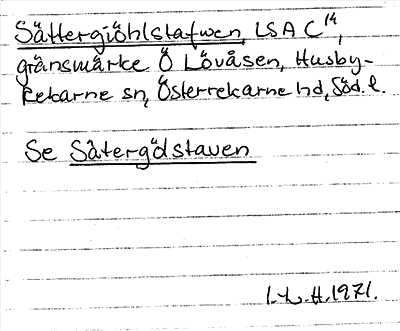 Sättergiöhlstafwen, LSA C¹⁴,
gränsmärke Ö Lövåsen, Husby-
Rekarne sn, Österrekarne hd, Söd. l.
Se Sätergölstaven
I.L.H. 1971.